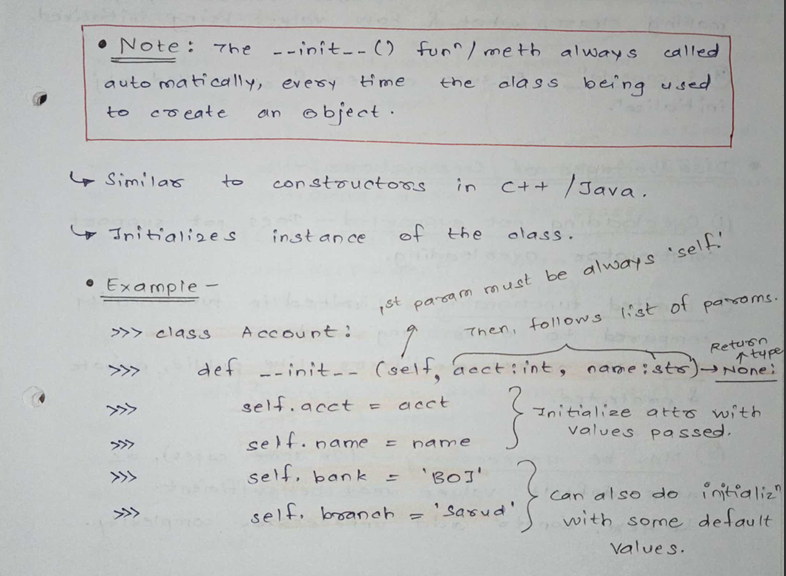 • Note: The __init__() funⁿ/meth always called
automatically, every time the class being used
to create an object.
↳ Similar to constructors in C++ / Java.
↳ Initializes instance of the class.
• Example –
1st param must be always 'self'.
Then, follows list of params.
>>> class Account:
Return type
>>> def __init__ (self, acct:int, name:str) → None:
>>> self.acct = acct
>>> self.name = name
Initialize attr with
values passed.
>>> self.bank = 'BOI'
>>> self.branch = 'Sarud'
can also do initializⁿ
with some default
values.